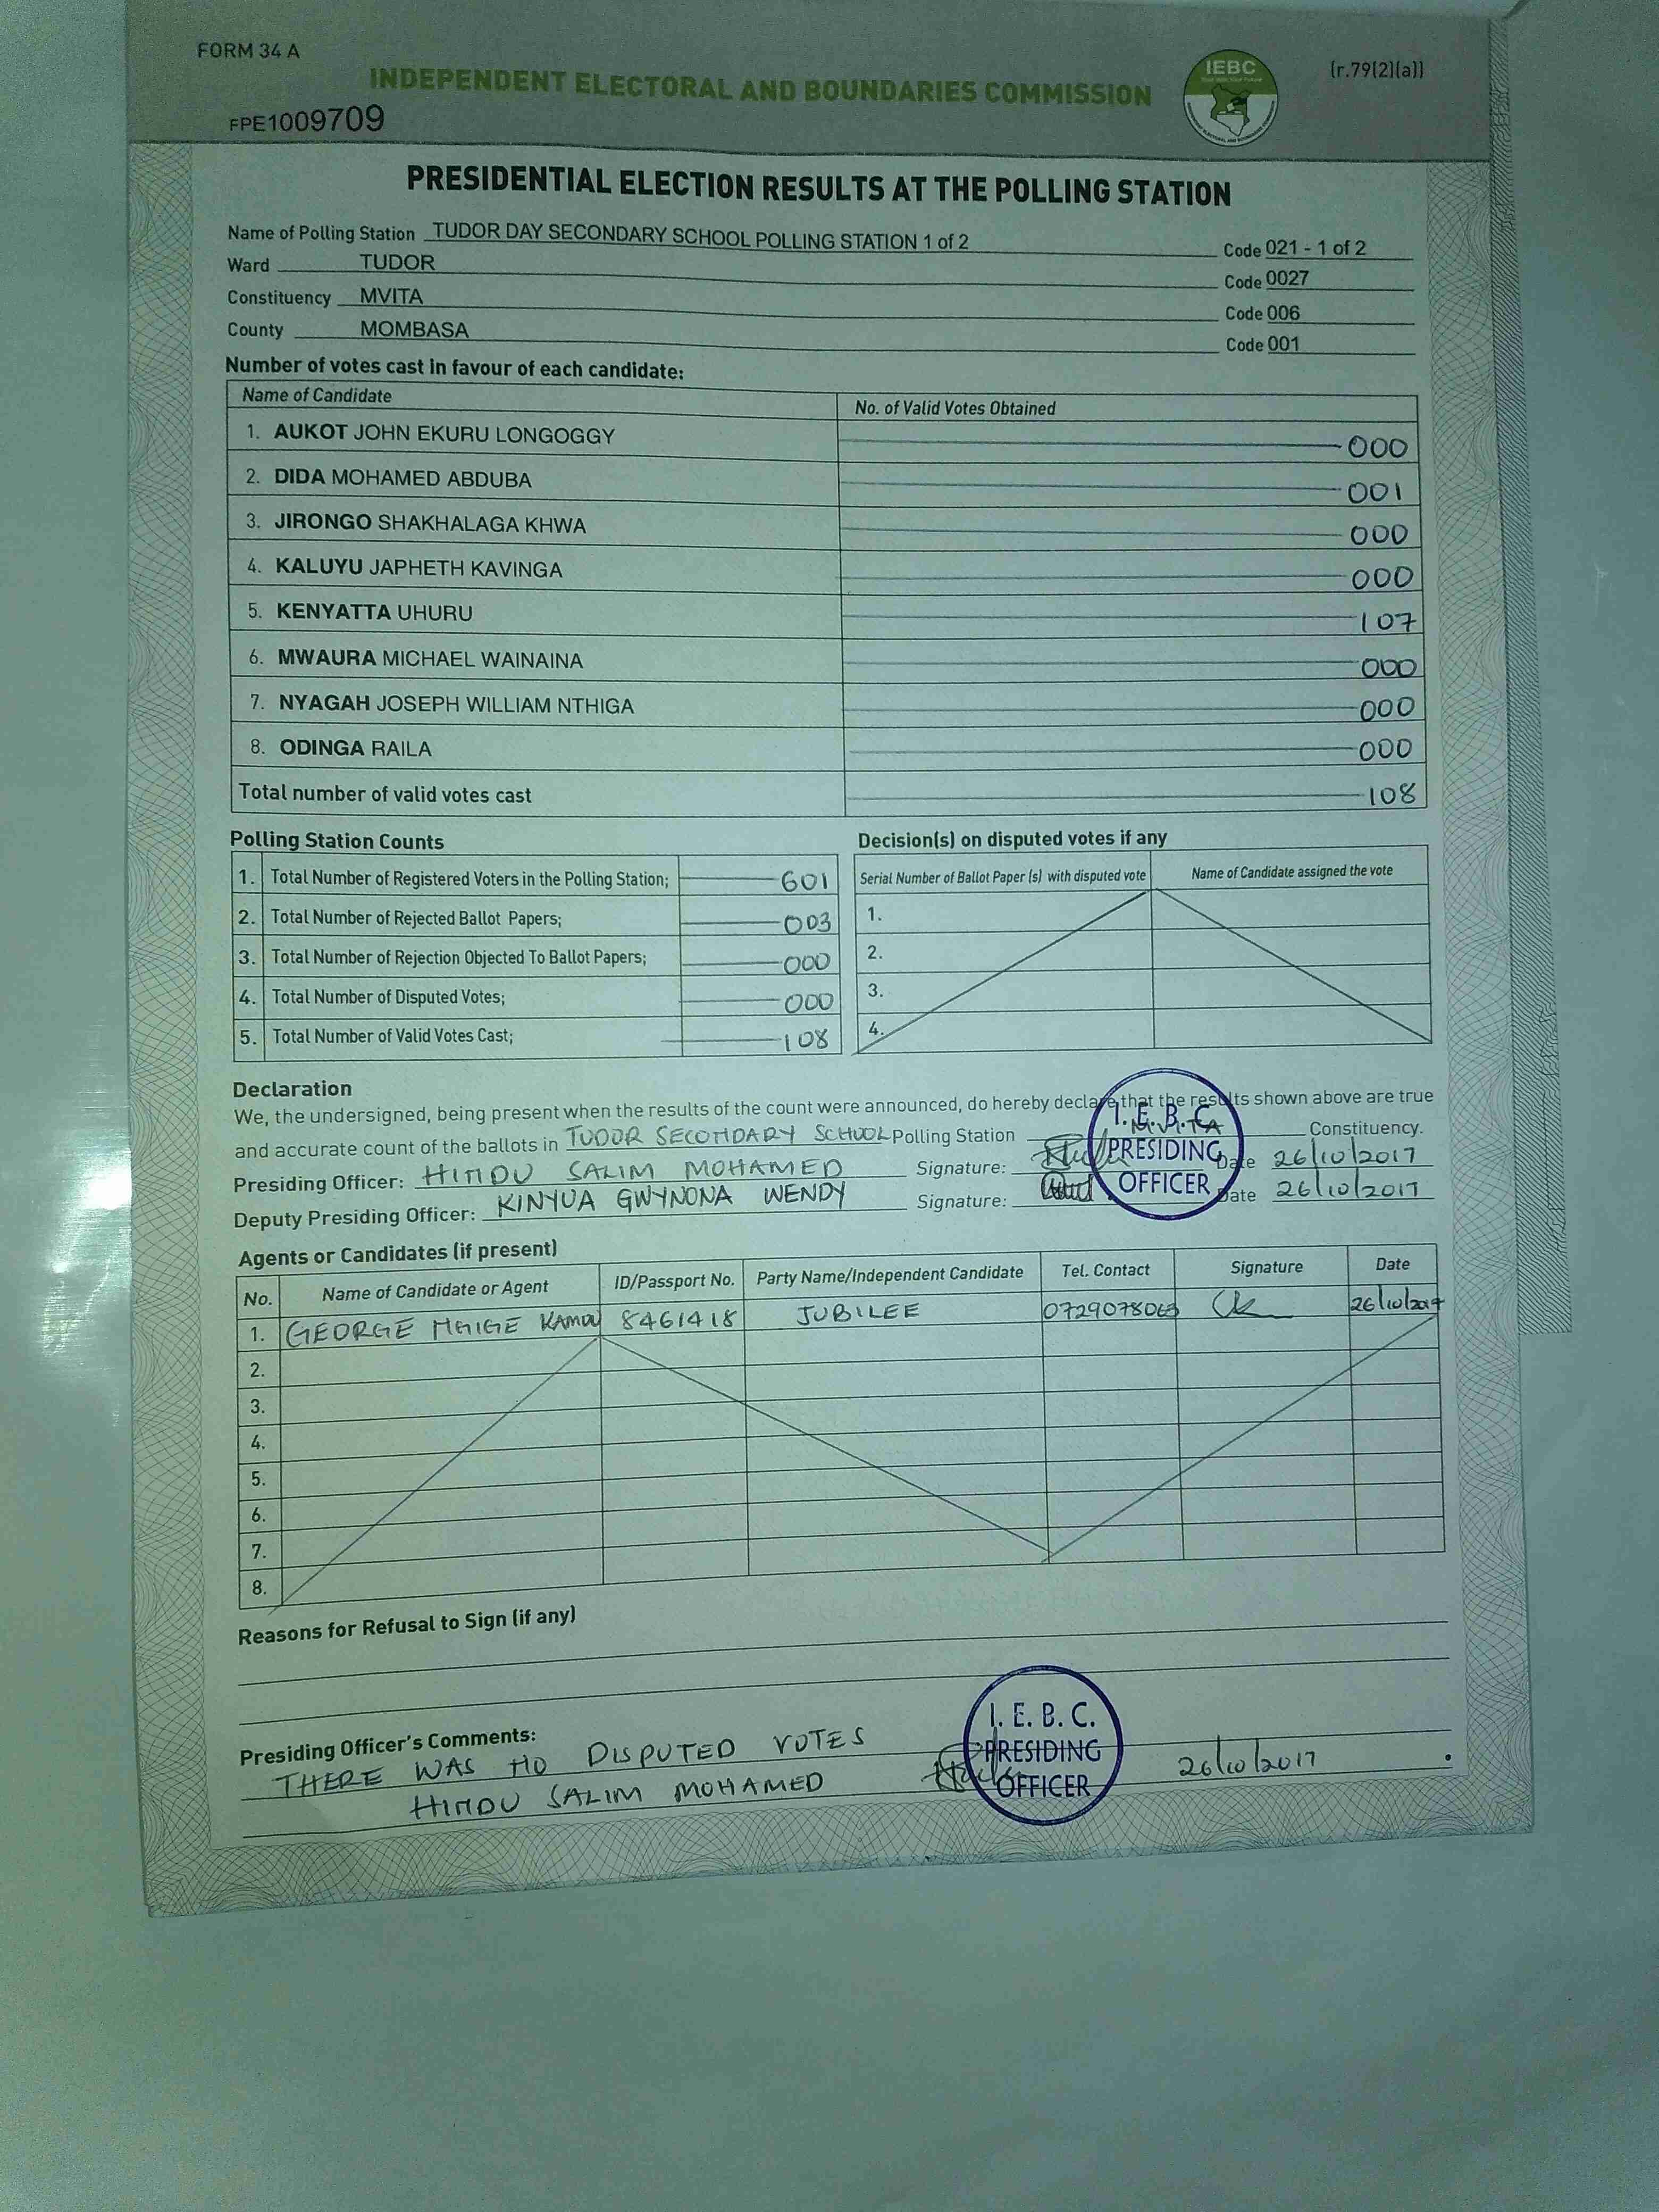 FORM 34 A
INDEPENDENT ELECTORAL AND BOUNDARIES COMMISSION
IEBC
(r.79(2)(a))
FPE1009709
PRESIDENTIAL ELECTION RESULTS AT THE POLLING STATION
Name of Polling Station TUDOR DAY SECONDARY SCHOOL POLLING STATION 1 of 2 Code 021 - 1 of 2
Ward TUDOR Code 0027
Constituency MVITA Code 006
County MOMBASA Code 001
Number of votes cast in favour of each candidate:
Name of Candidate No. of Valid Votes Obtained
1. AUKOT JOHN EKURU LONGOGGY 000
2. DIDA MOHAMED ABDUBA 001
3. JIRONGO SHAKHALAGA KHWA 000
4. KALUYU JAPHETH KAVINGA 000
5. KENYATTA UHURU 107
6. MWAURA MICHAEL WAINAINA 000
7. NYAGAH JOSEPH WILLIAM NTHIGA 000
8. ODINGA RAILA 000
Total number of valid votes cast 108
Polling Station Counts
1. Total Number of Registered Voters in the Polling Station; 601
2. Total Number of Rejected Ballot Papers; 003
3. Total Number of Rejection Objected To Ballot Papers; 000
4. Total Number of Disputed Votes; 000
5. Total Number of Valid Votes Cast; 108
Decision(s) on disputed votes if any
Serial Number of Ballot Paper (s) with disputed vote Name of Candidate assigned the vote
1.
2.
3.
4.
Declaration
We, the undersigned, being present when the results of the count were announced, do hereby declare that the results shown above are true
and accurate count of the ballots in TUDOR SECONDARY SCHOOL Polling Station MVITA Constituency.
Presiding Officer: HINDU SALIM MOHAMED Signature: Date 26/10/2017
Deputy Presiding Officer: KINYUA GWYNONA WENDY Signature: Date 26/10/2017
I.E.B.C
PRESIDING
OFFICER
Agents or Candidates (if present)
No. Name of Candidate or Agent ID/Passport No. Party Name/Independent Candidate Tel. Contact Signature Date
1. GEORGE 8461418 JUBILEE 26/10/2017
2.
3.
4.
5.
6.
7.
8.
Reasons for Refusal to Sign (if any)
Presiding Officer's Comments:
THERE WAS NO DISPUTED VOTES
HINDU SALIM MOHAMED 26/10/2017
I. E. B. C.
PRESIDING
OFFICER